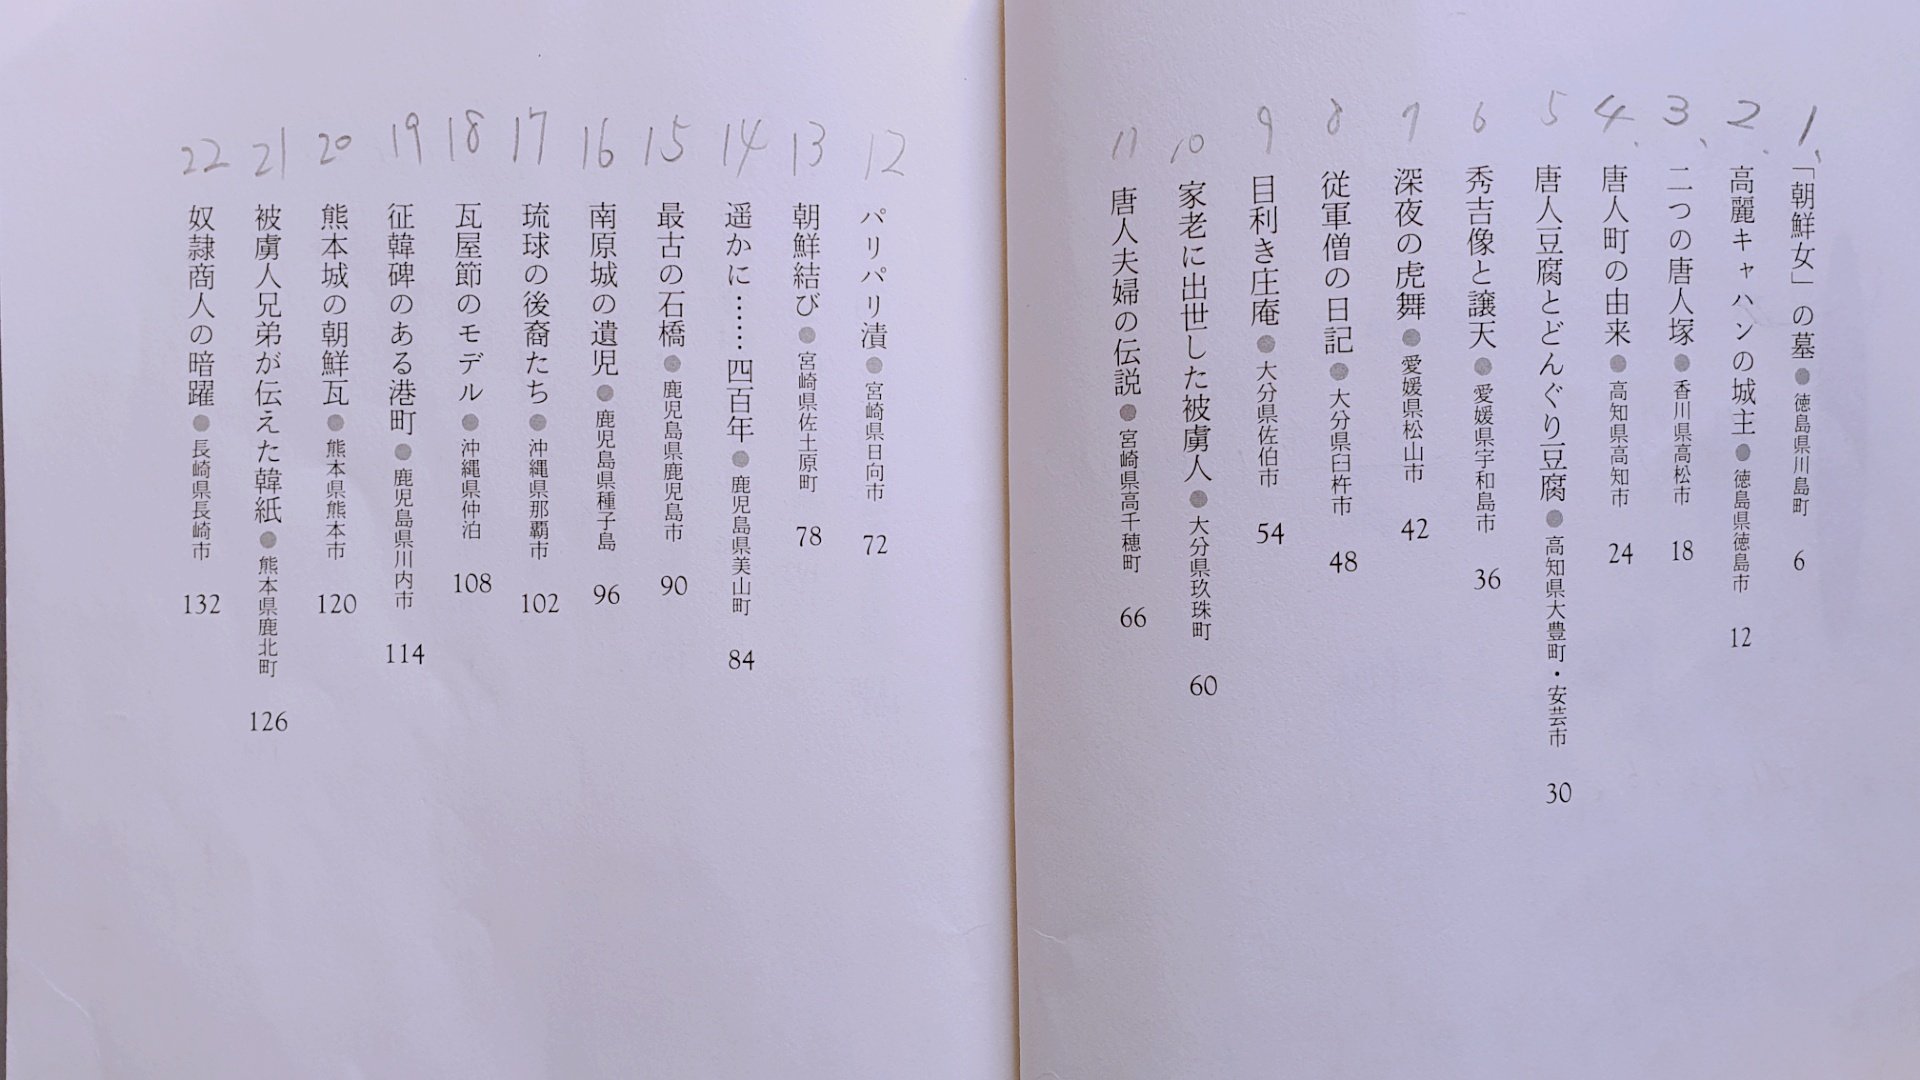 1、「朝鮮女」の墓●徳島県川島町 6
2、高麗キャハンの城主●徳島県徳島市 12
3、二つの唐人塚●香川県高松市 18
4、唐人町の由来●高知県高知市 24
5 唐人豆腐とどんぐり豆腐●高知県大豊町・安芸市 30
6 秀吉像と譲天●愛媛県宇和島市 36
7 深夜の虎舞●愛媛県松山市 42
8 従軍僧の日記●大分県臼杵市 48
9 目利き庄庵●大分県佐伯市 54
10 家老に出世した被虜人●大分県玖珠町 60
11 唐人夫婦の伝説●宮崎県高千穂町 66
12 パリパリ漬●宮崎県日向市 72
13 朝鮮結び●宮崎県佐土原町 78
14 遥かに……四百年●鹿児島県美山町 84
15 最古の石橋●鹿児島県鹿児島市 90
16 南原城の遺児●鹿児島県種子島 96
17 琉球の後裔たち●沖縄県那覇市 102
18 瓦屋節のモデル●沖縄県仲泊 108
19 征韓碑のある港町●鹿児島県川内市 114
20 熊本城の朝鮮瓦●熊本県熊本市 120
21 被虜人兄弟が伝えた韓紙●熊本県鹿北町 126
22 奴隷商人の暗躍●長崎県長崎市 132